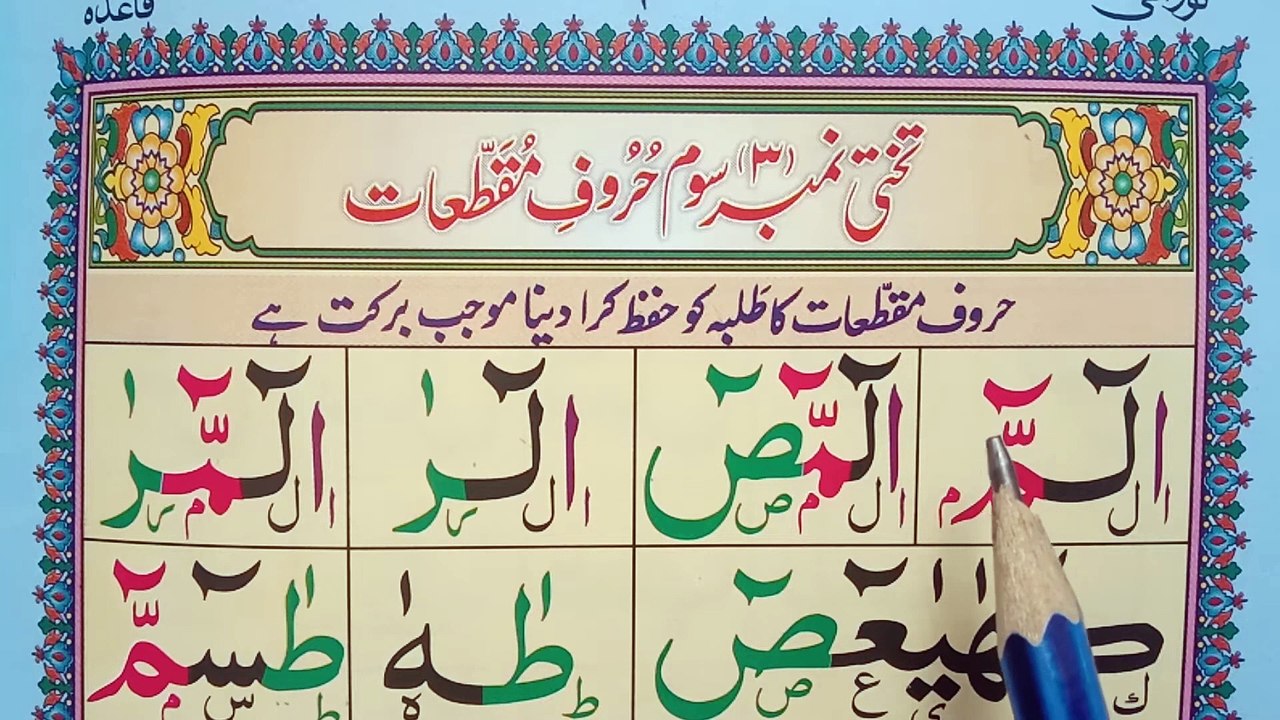 نورانی ۱ قاعدہ
تختی نمبر (۳) سوم حُرُوفِ مُقَطَّعات
حروف مقطّعات کا طَلبہ کو حفظ کرا دینا موجب برکت ہے
الٓمّٓ الٓمّٓصٓ الٓرٰ الٓمّٓرٰ
ا ل م ا ل م ص ا ل ر ا ل م ر
كٓهٰيٰعٓصٓ طٰهٰ طٰسٓمّٓ
ك ی ع ص ط ہ ط س م